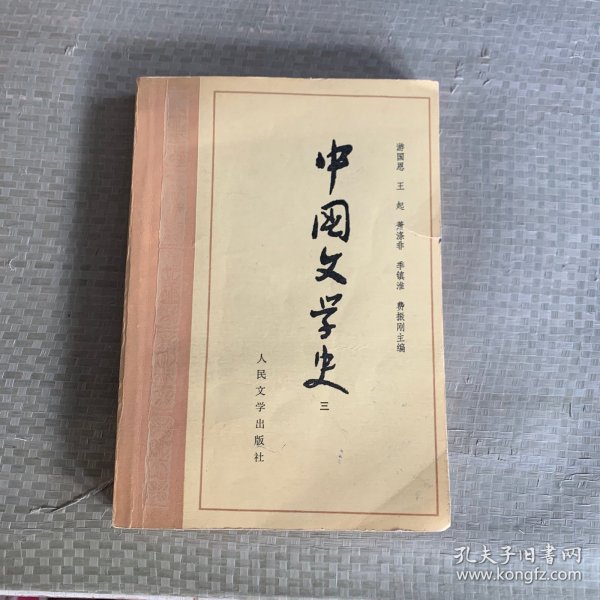 游国恩 王起 萧涤非 季镇淮 费振刚主编
中国文学史
三
人民文学出版社
孔夫子旧书网
www.kongfz.com